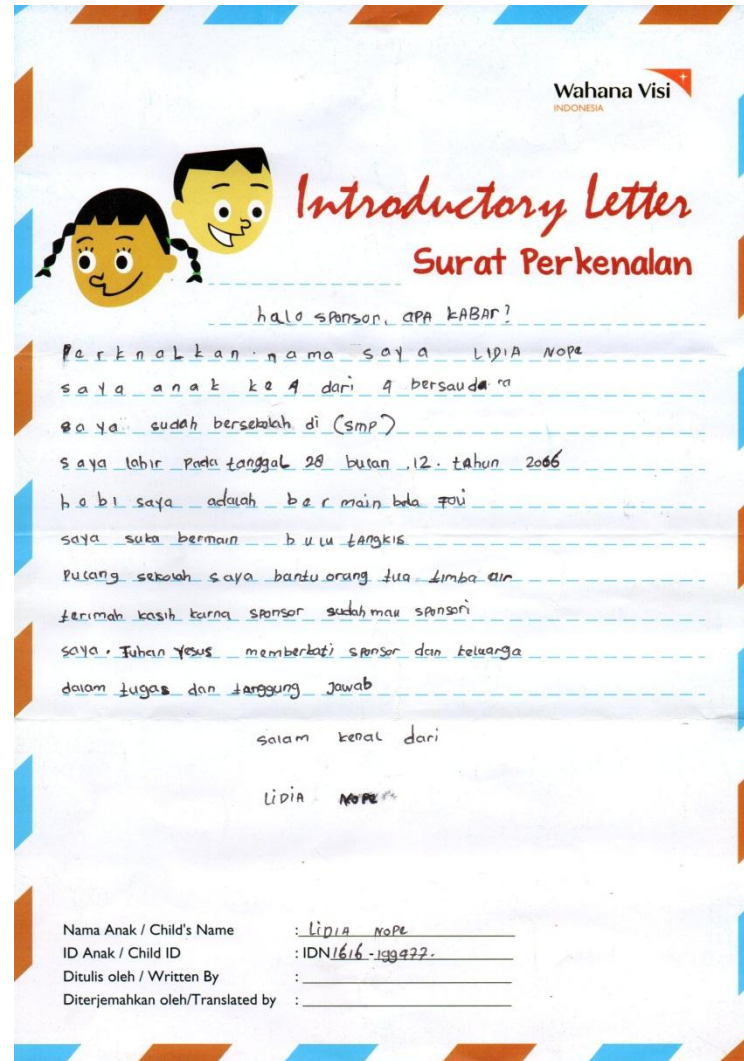 Wahana Visi
INDONESIA
Introductory Letter
Surat Perkenalan
halo sponsor, apa KABAr?
Perknalkan nama saya LIDIA NOPE
saya anak ke 4 dari 4 bersaudara
saya sudah bersekolah di (smp)
saya lahir pada tanggal 28 bulan 12. tahun 2006
hobi saya adalah bermain bola
saya suka bermain bulu tangkis
Pulang sekolah saya bantu orang tua timba air
terimah kasih karna sponsor sudah mau sponsori
saya. Tuhan Yesus memberkati sponsor dan keluarga
dalam tugas dan tanggung Jawab
salam kenal dari
LIDIA NOPE
Nama Anak / Child's Name : LIDIA NOPE
ID Anak / Child ID : IDN1616-199477.
Ditulis oleh / Written By :
Diterjemahkan oleh/Translated by :